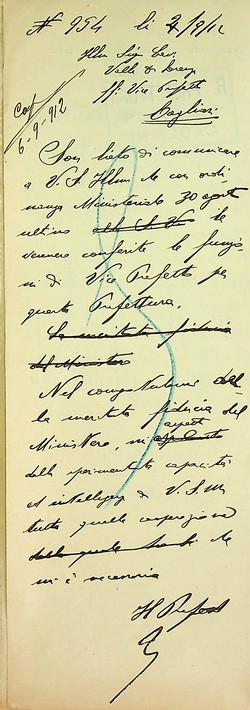 N 954 li 7/9/12
Cop
6-9-912
Illm Sig Cav
Valle
ff. Vice Prefetto
Cagliari
Son lieto di comunicare
a V. S. Illm che con ordi-
nanza Ministeriale 30 agosto
ultimo le
vennero conferite le funzio
ni di Vice Prefetto per
questa Prefettura.
La meritata fiducia
del Ministero
Nel congratularmi del
la meritata fiducia del
Ministero, mi aspetto
dalla sperimentata capacità
ed intelligenza di V. S. Illm
tutta quella cooperazione
della quale che
mi è necessaria
Il Prefetto